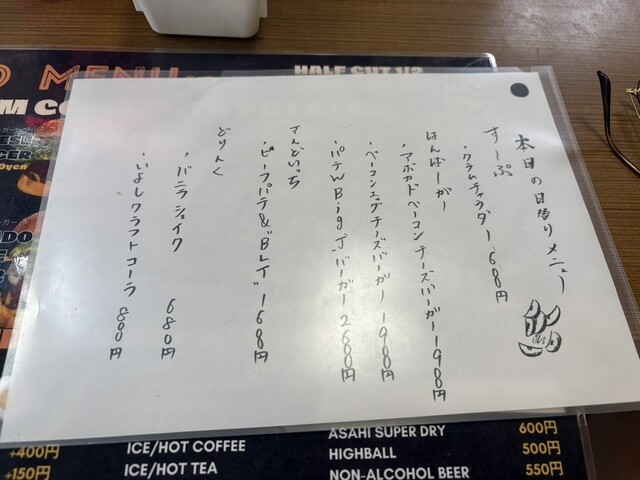 本日の日替りメニュー
すーぷ
・クラムチャウダー 680円
はんばーがー
・アボカドベーコンチーズバーガー 1980円
・ベーコンエッグチーズバーガー 1980円
・パテW Big "J" バーガー 2680円
さんどいっち
・ビーフパテ&"BLT" 1680円
どりんく
・バニラシェイク 680円
・いよしクラフトコーラ 800円
MENU
HALF CUT 1/2
+400円
+150円
ICE/HOT COFFEE
ICE/HOT TEA
ASAHI SUPER DRY 600円
HIGHBALL 500円
NON-ALCOHOL BEER 550円